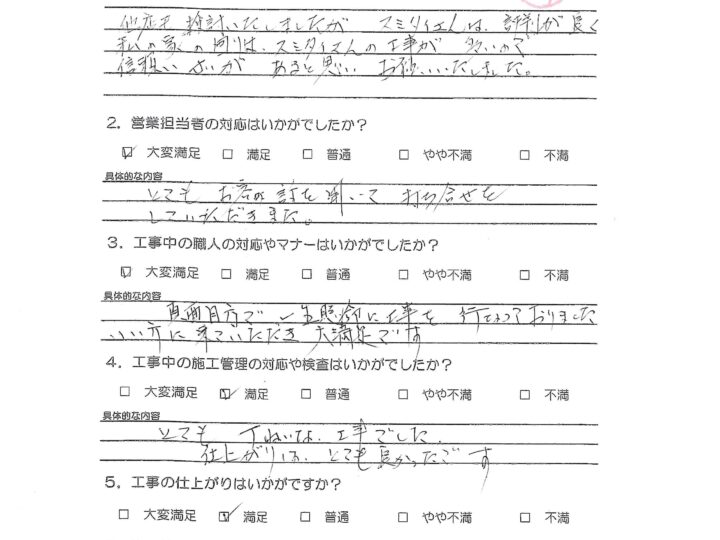 他店も検討いたしましたが スミタイさんは、評判が良く
私の家の周りは、スミタイさんの工事が 多いので
信頼 があると思い お願いいたしました。
2．営業担当者の対応はいかがでしたか？
☑ 大変満足 □ 満足 □ 普通 □ やや不満 □ 不満
具体的な内容
とても お客の話を聞いて 打ち合せを
していただきました。
3．工事中の職人の対応やマナーはいかがでしたか？
☑ 大変満足 □ 満足 □ 普通 □ やや不満 □ 不満
具体的な内容
真面目な方で 一生懸命に工事を 行なっておりました
いい方に来ていただき 大満足です
4．工事中の施工管理の対応や検査はいかがでしたか？
□ 大変満足 ☑ 満足 □ 普通 □ やや不満 □ 不満
具体的な内容
とても 丁ねいな、工事でした。
仕上がりは、とても良かったです
5．工事の仕上がりはいかがですか？
□ 大変満足 ☑ 満足 □ 普通 □ やや不満 □ 不満